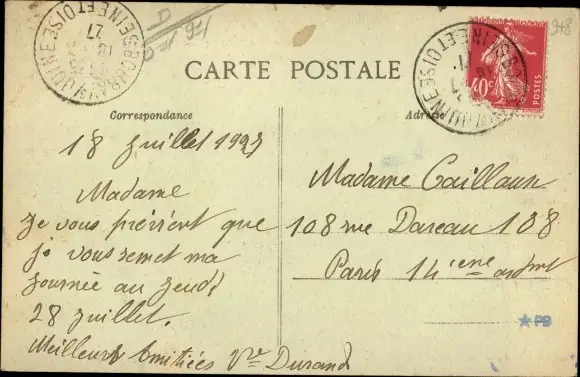 CARTE POSTALE
Correspondance
18 Juillet 1927
Madame
Je vous prévient que
je vous remet ma
Journée au Jeudi
28 Juillet.
Meilleurs Amitiées Vve Durand
Adresse
Madame Caillaux
108 rue Dareau 108
Paris 14 ieme ardmt
40c
POSTES
SEINE ET OISE
SEINE ET OISE
948
★ PB